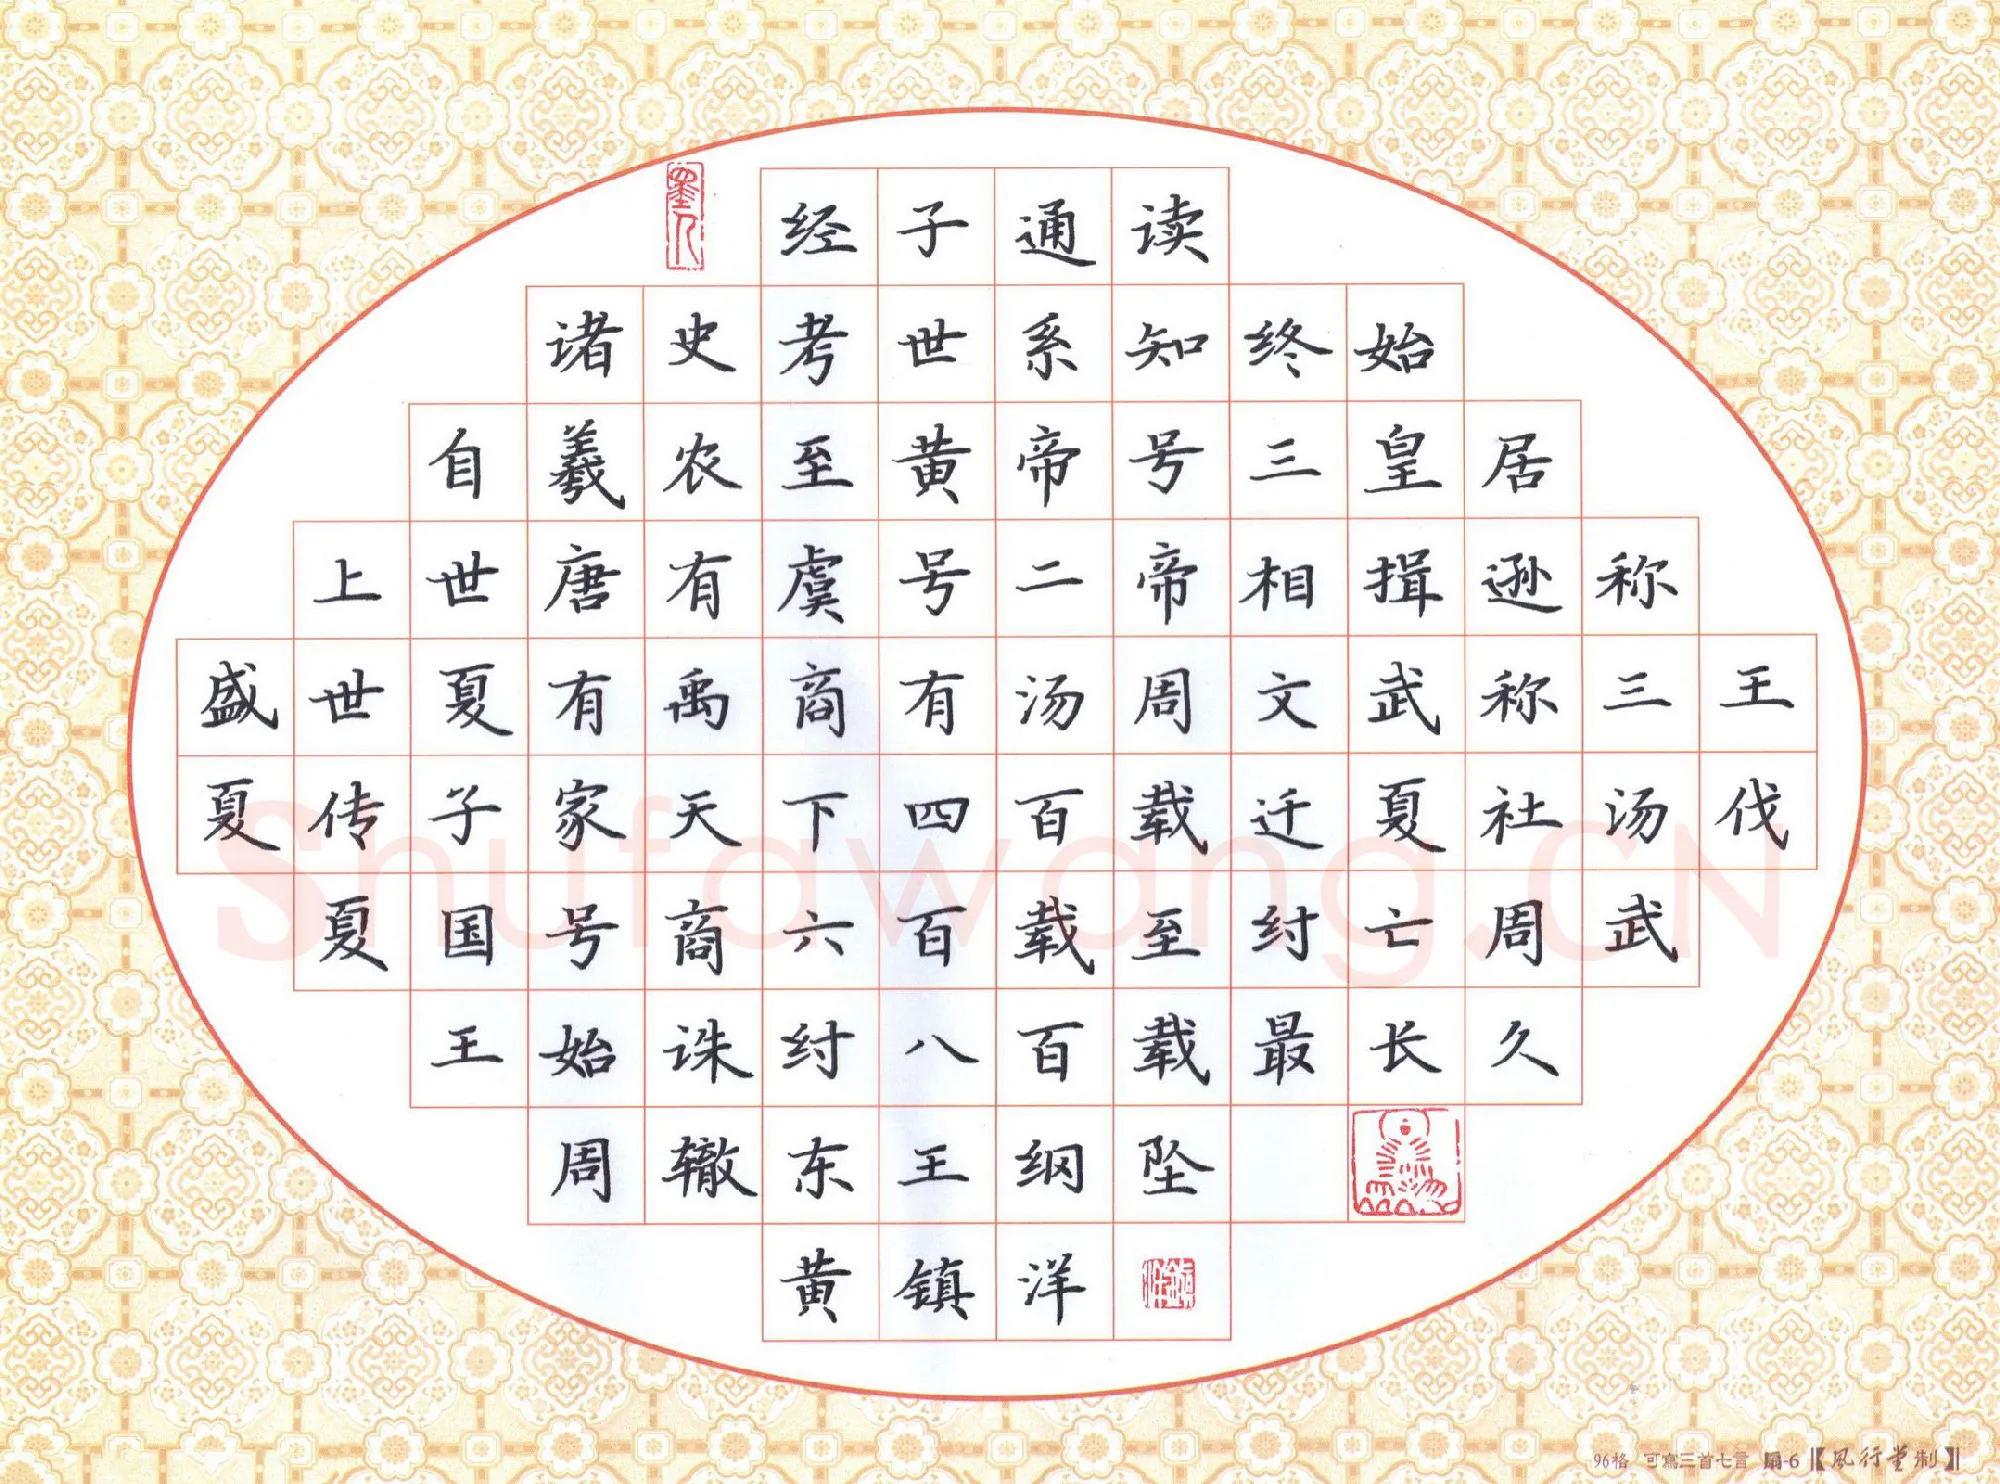 经子通读
诸史考世系知终始
自羲农至黄帝号三皇居
上世唐有虞号二帝相揖逊称
盛世夏有禹商有汤周文武称三王
夏传子家天下四百载迁夏社汤伐
夏国号商六百载至纣亡周武
王始诛纣八百载最长久
周辙东王纲坠
黄镇洋
墨人
镇洋
Shufawang.CN
96格 可寫三首七言 扇-6【風行堂制】